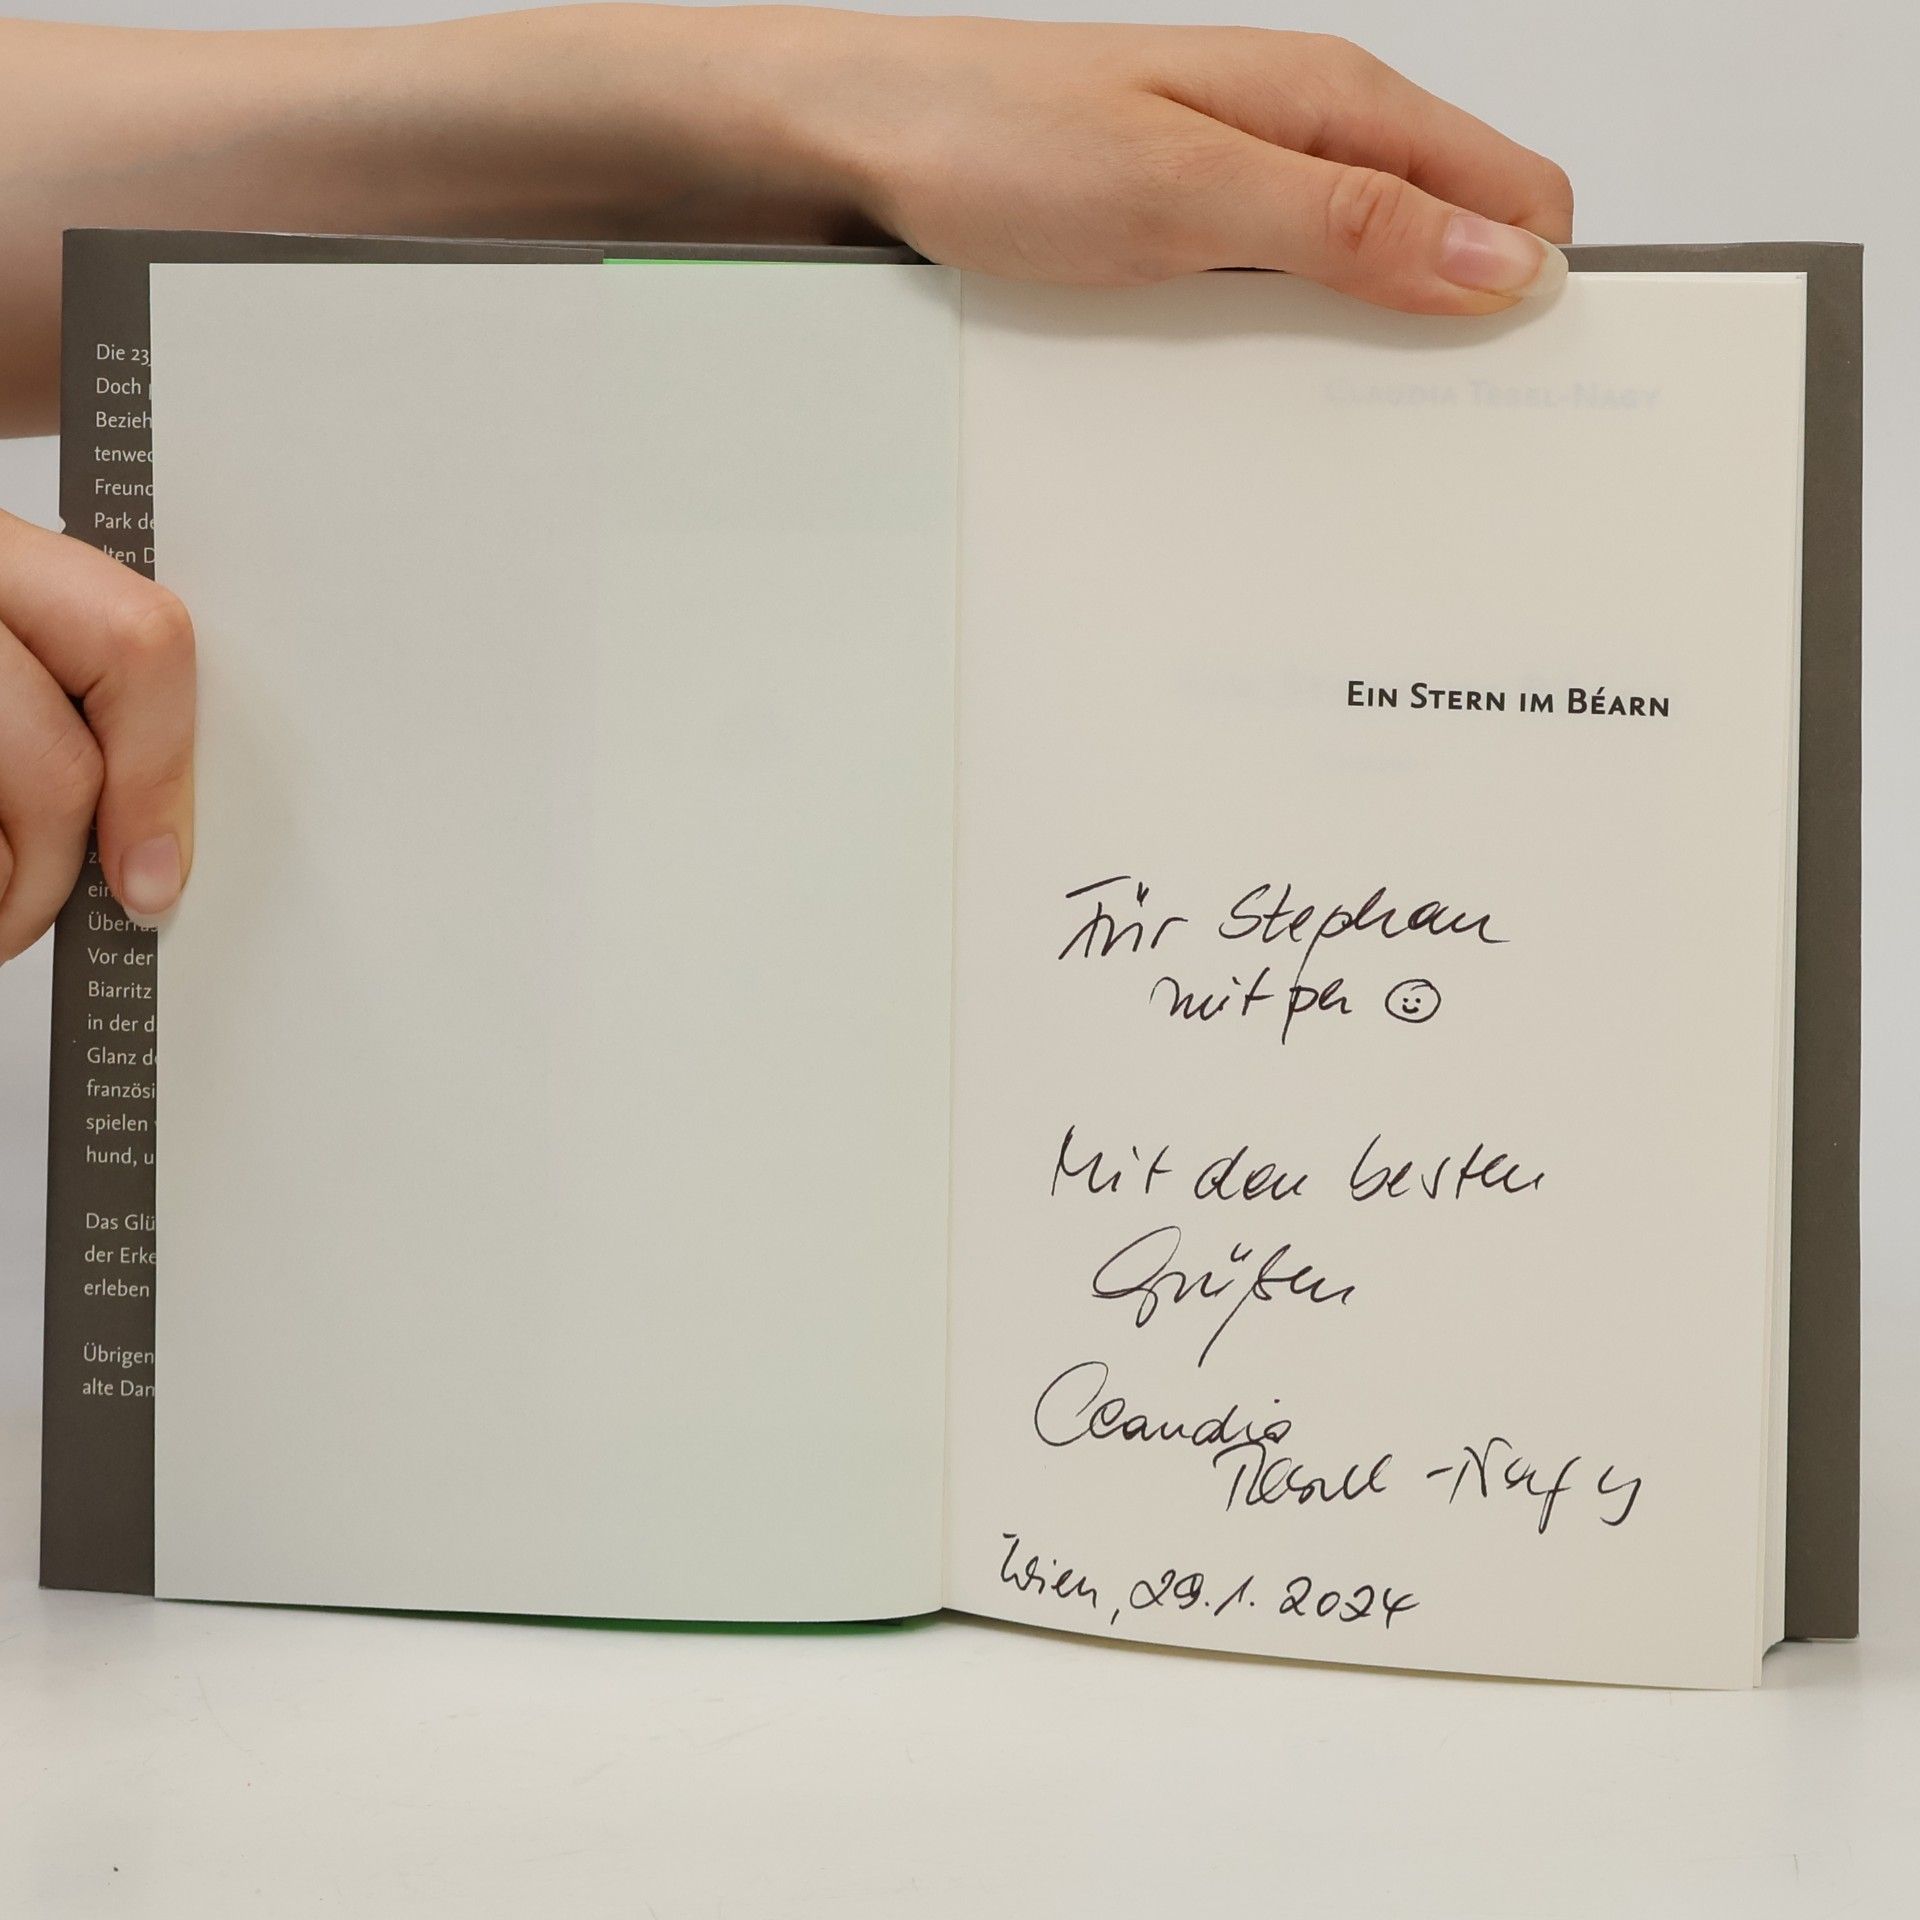 Die 23
Doch
Bezieh
tenwec
Freund
Park de
lten D
ein
Über
Vor der
Biarritz
in der d
Glanz d
französi
spielen
hund, u
Das Glü
der Erke
erleben
Übrigen
alte Dam
CLAUDIA TEBEL-NAGY
EIN STERN IM BÉARN
Für Stephan
mit ph ☺
Mit den besten
Grüßen
Claudia
Tebel-Nagy
Wien, 29.1.2024